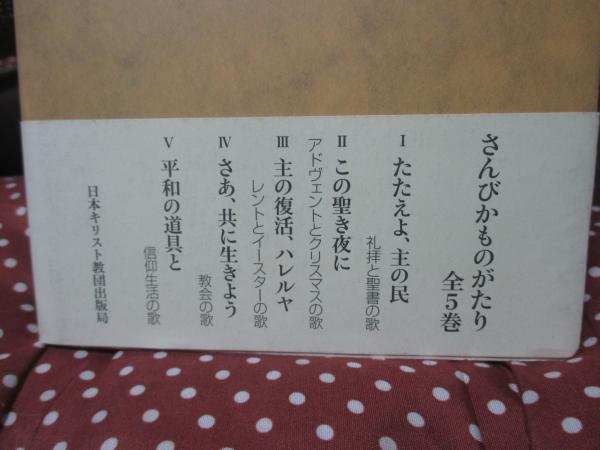 さんびかものがたり
全5巻
Ⅰ たたえよ、主の民
礼拝と聖書の歌
Ⅱ この聖き夜に
アドヴェントとクリスマスの歌
Ⅲ 主の復活、ハレルヤ
レントとイースターの歌
Ⅳ さあ、共に生きよう
教会の歌
Ⅴ 平和の道具と
信仰生活の歌
日本キリスト教団出版局